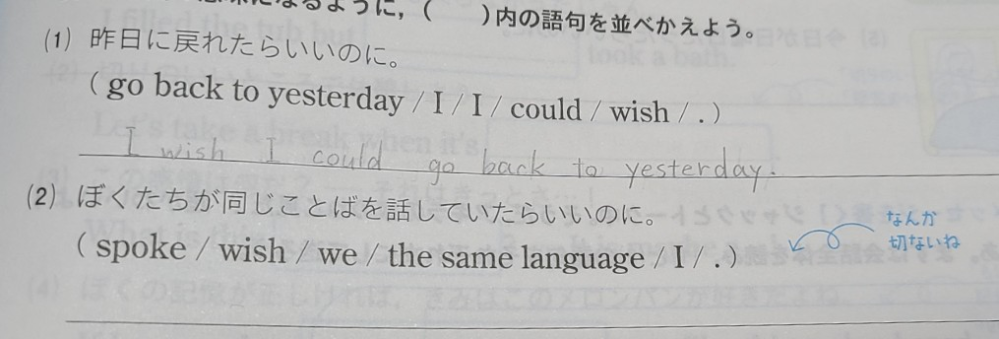 なるように，（　　）内の語句を並べかえよう。
(1) 昨日に戻れたらいいのに。
( go back to yesterday / I / I / could / wish / . )
I wish I could go back to yesterday.
(2) ぼくたちが同じことばを話していたらいいのに。
( spoke / wish / we / the same language / I / . )
なんか
切ないね